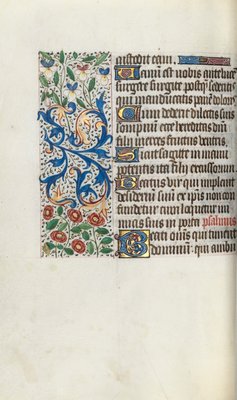 custodit eam.
Vanū est vobis ante lucē
surgere surgite postq̄ sederitis
qui manducatis panē doloris
Cum dederit dilectis suis
sompnū ecce hereditas dn̄i
filii merces fructus ventris.
Sicut sagitte in manu
potentis ita filii excussorum.
Beatus vir qui implevit
desideriū suū ex ipsis non con
fundetur cum loquetur ini
micis suis in porta psalmus
Beati om̄s qui timent
dominum: qui ambu